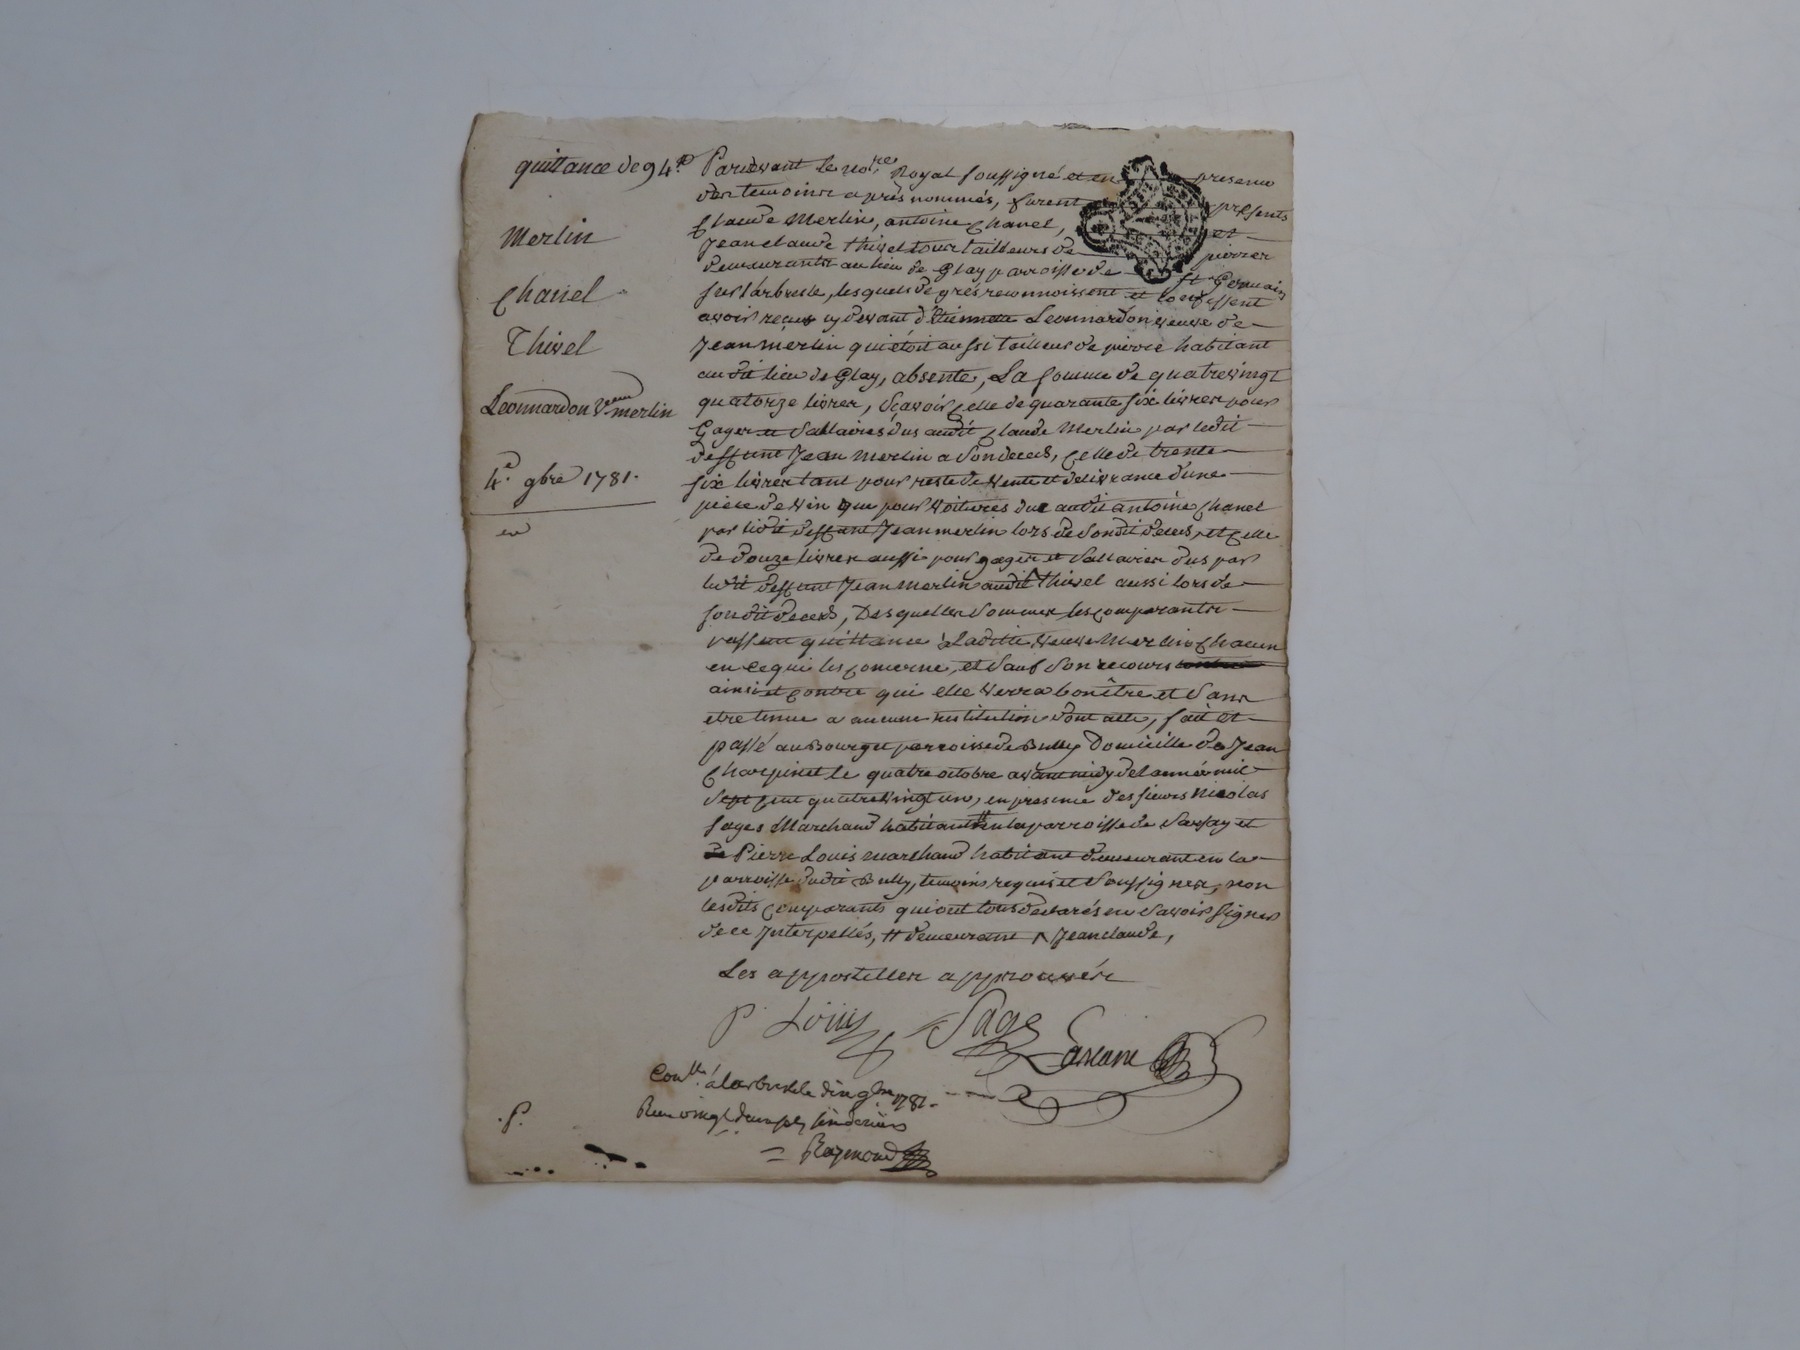 quittance de 94.ᵗᵗ
Merlin
Chanel
Thivel
Leonnardon Veuve merlin
4.e 8bre 1781.
Pardevant le no.re Royal soussigné et en presence
des temoins après nommés, furent presents
Claude Merlin, antoine Chanel, et
Jean claude thivel tous tailleurs de pierres
demeurants au lieu de Glay parroisse de St Germain
sur larbresle, lesquels de grés reconnoissent et confessent
avoir reçus cy devant d'Etiennette Leonnardon veuve de
Jean merlin qui étoit aussi tailleur de pierre habitant
au dit lieu de Glay, absente, La somme de quatrevingt
quatorze livres, sçavoir celle de quarante six livres pour
Gages et sallaires dus audit Claude Merlin par ledit
deffunt Jean Merlin a son decès, Celle de trente
six livres tant pour reste de vente et delivrance d'une
piece de vin que pour voitures due audit antoine Chanel
par ledit deffunt Jean merlin lors de son dit deces, et celle
de douze livres aussi pour gages et sallaires dus par
ledit deffunt Jean Merlin audit ^ thivel aussi lors de
son dit decès, Desquelles sommes les comparants
passent quittance à Laditte veuve Merlin Chacun
en ce qui les concerne, et sauf son recours
ainsi et contre qui elle verra bon être et sans
etre tenue a aucune restitution dont acte, fait et
passé au Bourg et parroisse de Bully Domicille de Jean
Charpinet le quatre octobre avant midy de l'année mil
sept cent quatrevingt un, en presence des sieurs Nicolas
sages Marchand habitant # en la parroisse de Savay et
Pierre Louis marchand habitant demeurant en la
parroisse dudit Bully, temoins requis et soussignes, non
lesdits comparants qui ont tous declarés ne savoir signer
de ce Interpellés, # demeurant ^ Jean claude,
Les appostilles approuvés
P. Loüis Sage
Con.lle à larbresle 1781.
Reçu vingt
Raymond